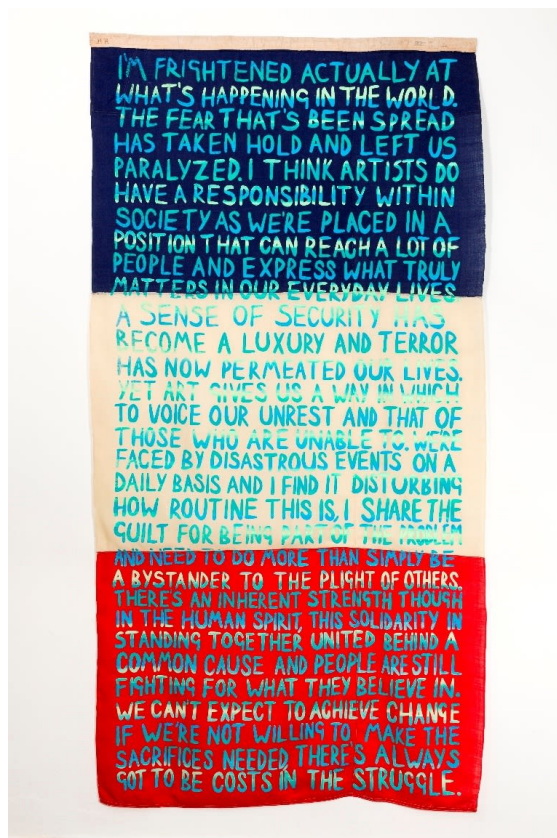 I'M FRIGHTENED ACTUALLY AT
WHAT'S HAPPENING IN THE WORLD.
THE FEAR THAT'S BEEN SPREAD
HAS TAKEN HOLD AND LEFT US
PARALYZED. I THINK ARTISTS DO
HAVE A RESPONSIBILITY WITHIN
SOCIETY AS WE'RE PLACED IN A
POSITION THAT CAN REACH A LOT OF
PEOPLE AND EXPRESS WHAT TRULY
MATTERS IN OUR EVERYDAY LIVES
A SENSE OF SECURITY HAS
BECOME A LUXURY AND TERROR
HAS NOW PERMEATED OUR LIVES.
YET ART GIVES US A WAY IN WHICH
TO VOICE OUR UNREST AND THAT OF
THOSE WHO ARE UNABLE TO. WE'RE
FACED BY DISASTROUS EVENTS ON A
DAILY BASIS AND I FIND IT DISTURBING
HOW ROUTINE THIS IS, I SHARE THE
GUILT FOR BEING PART OF THE PROBLEM
AND NEED TO DO MORE THAN SIMPLY BE
A BYSTANDER TO THE PLIGHT OF OTHERS.
THERE'S AN INHERENT STRENGTH THOUGH
IN THE HUMAN SPIRIT, THIS SOLIDARITY IN
STANDING TOGETHER UNITED BEHIND A
COMMON CAUSE AND PEOPLE ARE STILL
FIGHTING FOR WHAT THEY BELIEVE IN.
WE CAN'T EXPECT TO ACHIEVE CHANGE
IF WE'RE NOT WILLING TO MAKE THE
SACRIFICES NEEDED, THERE'S ALWAYS
GOT TO BE COSTS IN THE STRUGGLE.